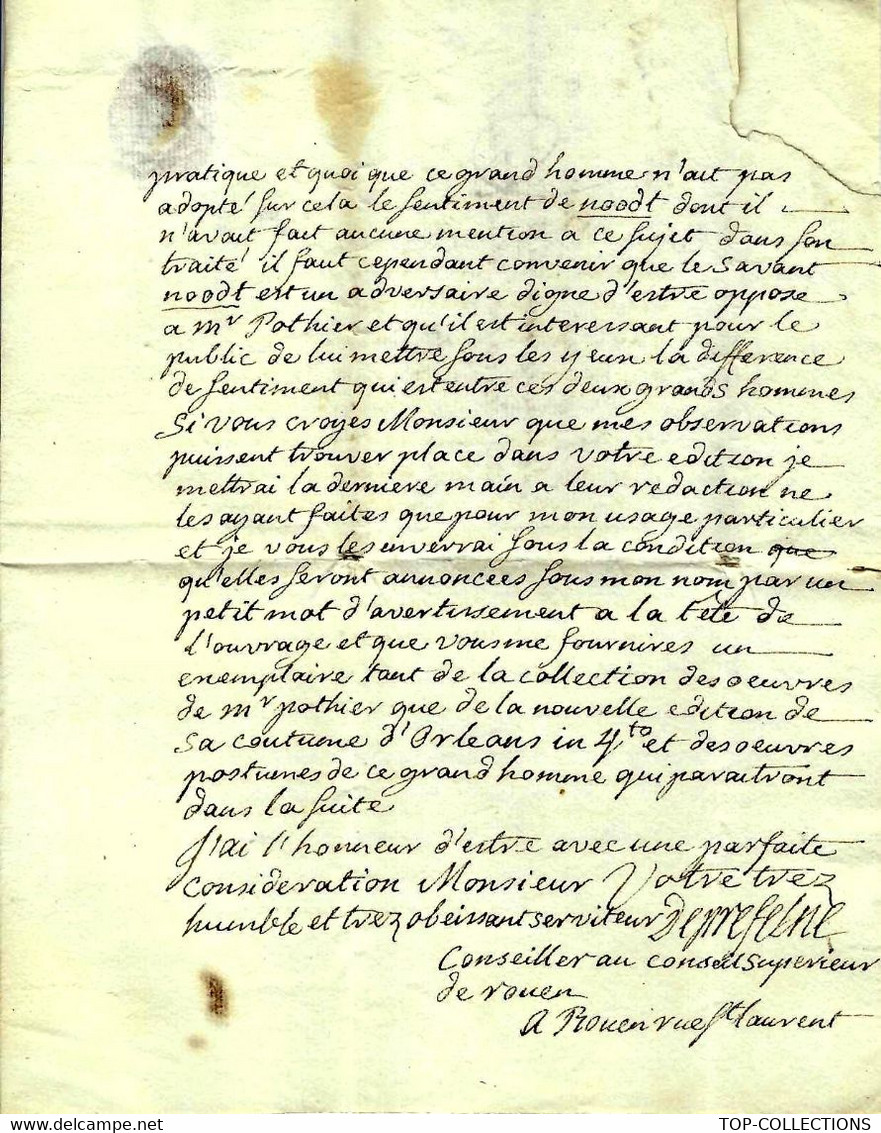 pratique et quoi que ce grand homme n'ait pas
adopté sur cela le sentiment de noodt dont il
n'avait fait aucune mention a ce sujet dans son
traité il faut cependant convenir que le savant
noodt est un adversaire digne d'estre oppose
a mr Pothier et qu'il est interessant pour le
public de lui mettre sous les yeux la difference
de sentiment qui est entre ces deux grands hommes
Si vous croyes Monsieur que mes observations
puissent trouver place dans votre edition je
mettrai la derniere main a leur redaction ne
les ayant faites que pour mon usage particulier
et je vous les enverrai sous la condition que
qu'elles seront annoncées sous mon nom par un
petit mot d'avertissement a la tête de
l'ouvrage et que vous me fournires un
exemplaire tant de la collection des oeuvres
de mr pothier que de la nouvelle edition de
sa coutume d'Orleans in 4to et des oeuvres
postumes de ce grand homme qui paraitront
dans la suite
J'ai l'honneur d'estre avec une parfaite
consideration Monsieur Votre trez
humble et trez obeissant serviteur
Conseiller au conseil superieur
de rouen
A Rouen rue St laurent
TOP-COLLECTIONS